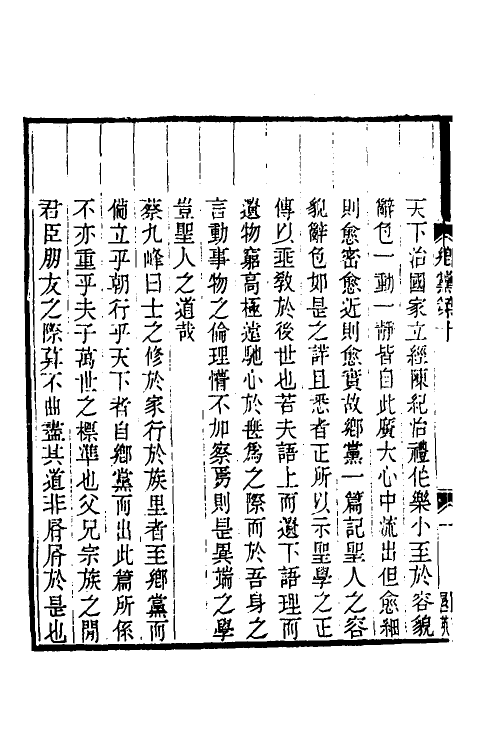 鄉黨第十
天下治國家立經陳紀治禮作樂小至於容貌
辭色一動一靜皆自此廣大心中流出但愈細
則愈密愈近則愈實故鄉黨一篇記聖人之容
貌辭色如是之詳且悉者正所以示聖學之正
傳以垂敎於後世也若夫語上而遺下語理而
遺物窮高極遠馳心於無爲之際而於吾身之
言動事物之倫理懵不加察焉則是異端之學
豈聖人之道哉
蔡九峰曰士之修於家行於族里者至鄉黨而
備立乎朝行乎天下者自鄉黨而出此篇所係
不亦重乎夫子萬世之標準也父兄宗族之閒
君臣朋友之際莫不曲盡其道非屑屑於是也